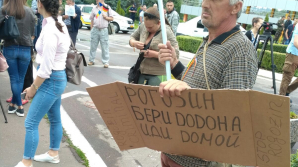 РОГОЗИН
БЕРИ DОДОНА
ИДИ DОМОЙ